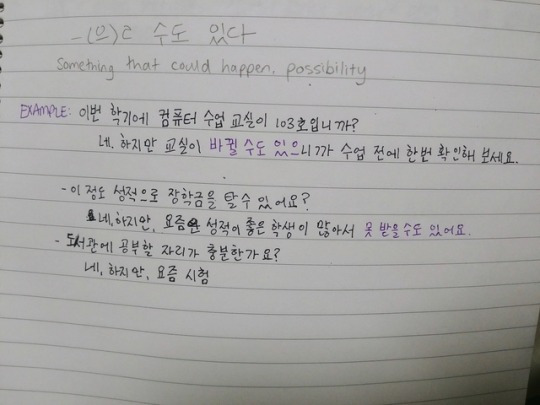 -(으)ㄹ 수도 있다
Something that could happen, possibility
EXAMPLE: 이번 학기에 컴퓨터 수업 교실이 103호입니까?
네, 하지만 교실이 바뀔 수도 있으니까 수업 전에 한번 확인해 보세요.
- 이 정도 성적으로 장학금을 탈 수 있어요?
네, 하지만, 요즘은 성적이 좋은 학생이 많아서 못 받을 수도 있어요.
- 도서관에 공부할 자리가 충분한가요?
네, 하지만, 요즘 시험